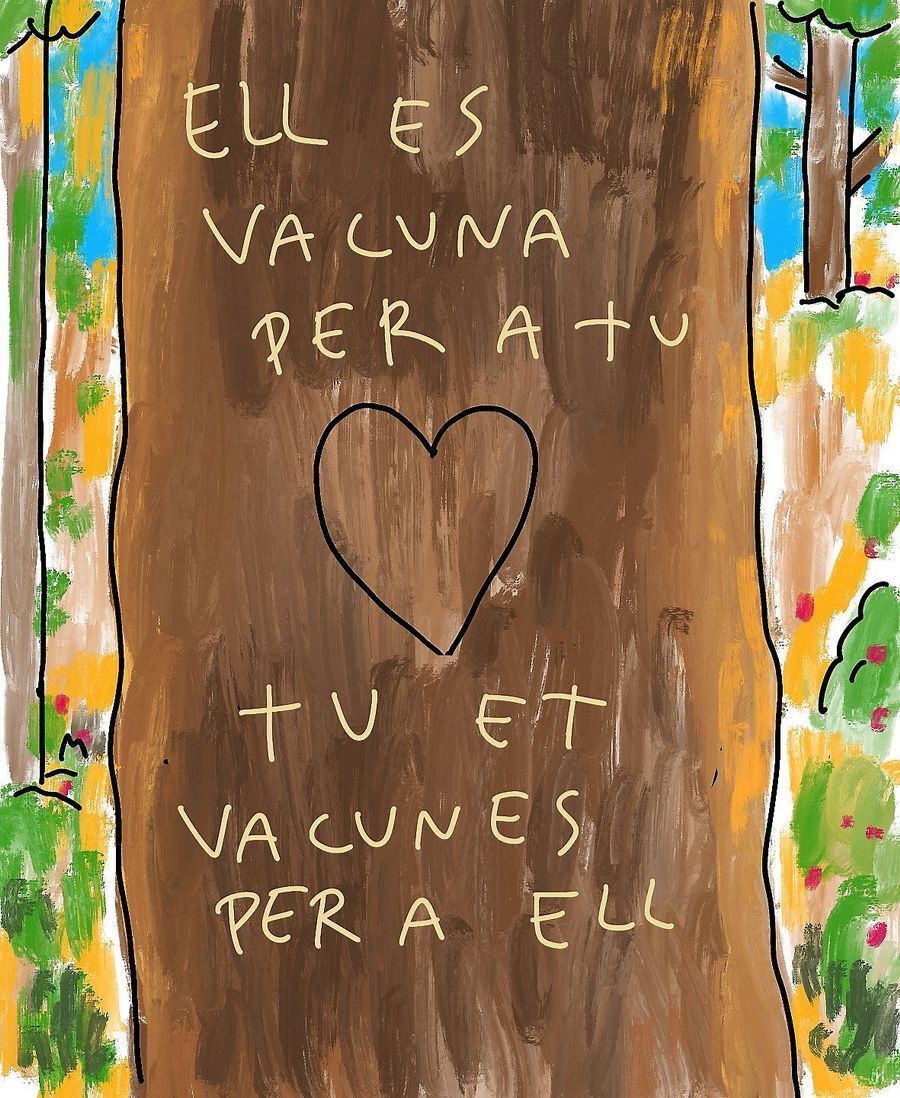 ELL ES
VACUNA
PER A TU
TU ET
VACUNES
PER A ELL